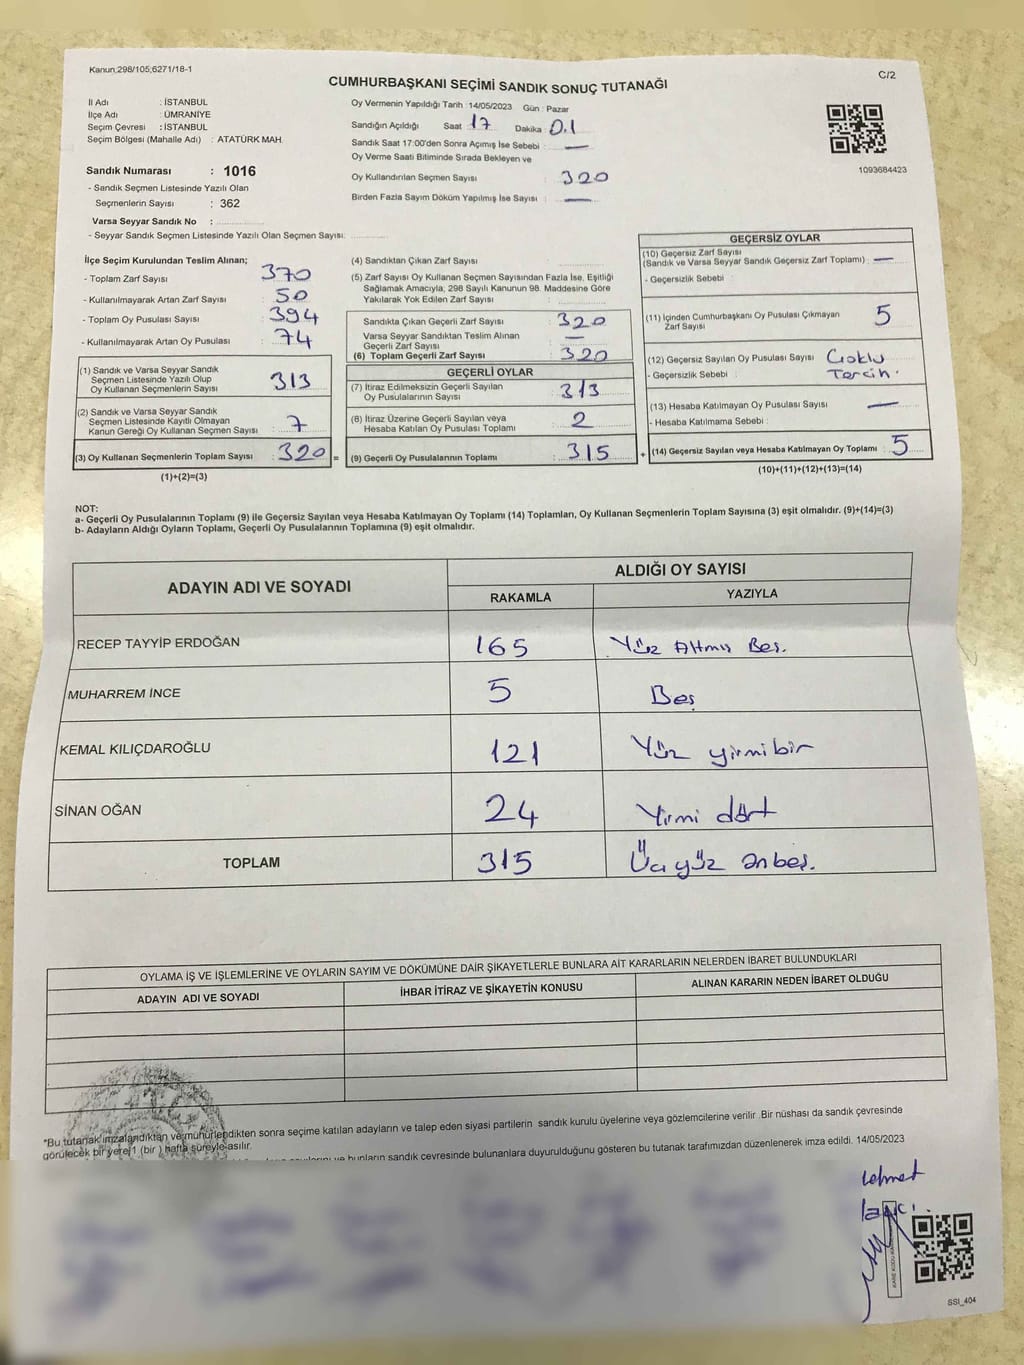 Kanun;298/105;6271/18-1
C/2
CUMHURBAŞKANI SEÇİMİ SANDIK SONUÇ TUTANAĞI
İl Adı : İSTANBUL
İlçe Adı : ÜMRANİYE
Seçim Çevresi : İSTANBUL
Seçim Bölgesi (Mahalle Adı) : ATATÜRK MAH.
Sandık Numarası : 1016
- Sandık Seçmen Listesinde Yazılı Olan
Seçmenlerin Sayısı : 362
Varsa Seyyar Sandık No :
- Seyyar Sandık Seçmen Listesinde Yazılı Olan Seçmen Sayısı:
Oy Vermenin Yapıldığı Tarih : 14/05/2023 Gün : Pazar
Sandığın Açıldığı Saat 17 Dakika 01
Sandık Saat 17:00'den Sonra Açımış İse Sebebi : —
Oy Verme Saati Bitiminde Sırada Bekleyen ve
Oy Kullandırılan Seçmen Sayısı : 320
Birden Fazla Sayım Döküm Yapılmış İse Sayısı : —
1093684423
İlçe Seçim Kurulundan Teslim Alınan;
- Toplam Zarf Sayısı : 370
- Kullanılmayarak Artan Zarf Sayısı : 50
- Toplam Oy Pusulası Sayısı : 394
- Kullanılmayarak Artan Oy Pusulası : 74
(1) Sandık ve Varsa Seyyar Sandık
Seçmen Listesinde Yazılı Olup
Oy Kullanan Seçmenlerin Sayısı : 313
(2) Sandık ve Varsa Seyyar Sandık
Seçmen Listesinde Kayıtlı Olmayan
Kanun Gereği Oy Kullanan Seçmen Sayısı : 7
(3) Oy Kullanan Seçmenlerin Toplam Sayısı : 320 =
(1)+(2)=(3)
(4) Sandıktan Çıkan Zarf Sayısı :
(5) Zarf Sayısı Oy Kullanan Seçmen Sayısından Fazla İse, Eşitliği
Sağlamak Amacıyla; 298 Sayılı Kanunun 98. Maddesine Göre
Yakılarak Yok Edilen Zarf Sayısı :
Sandıkta Çıkan Geçerli Zarf Sayısı : 320
Varsa Seyyar Sandıktan Teslim Alınan
Geçerli Zarf Sayısı : —
(6) Toplam Geçerli Zarf Sayısı : 320
GEÇERLİ OYLAR
(7) İtiraz Edilmeksizin Geçerli Sayılan
Oy Pusulalarının Sayısı : 313
(8) İtiraz Üzerine Geçerli Sayılan veya
Hesaba Katılan Oy Pusulası Toplamı : 2
(9) Geçerli Oy Pusulalarının Toplamı : 315 +
GEÇERSİZ OYLAR
(10) Geçersiz Zarf Sayısı
(Sandık ve Varsa Seyyar Sandık Geçersiz Zarf Toplamı) : —
- Geçersizlik Sebebi :
(11) İçinden Cumhurbaşkanı Oy Pusulası Çıkmayan
Zarf Sayısı : 5
(12) Geçersiz Sayılan Oy Pusulası Sayısı : Çoklu
- Geçersizlik Sebebi : Tercih.
(13) Hesaba Katılmayan Oy Pusulası Sayısı : —
- Hesaba Katılmama Sebebi :
(14) Geçersiz Sayılan veya Hesaba Katılmayan Oy Toplamı : 5
(10)+(11)+(12)+(13)=(14)
NOT:
a- Geçerli Oy Pusulalarının Toplamı (9) ile Geçersiz Sayılan veya Hesaba Katılmayan Oy Toplamı (14) Toplamları, Oy Kullanan Seçmenlerin Toplam Sayısına (3) eşit olmalıdır. (9)+(14)=(3)
b- Adayların Aldığı Oyların Toplamı, Geçerli Oy Pusulalarının Toplamına (9) eşit olmalıdır.
ADAYIN ADI VE SOYADI
ALDIĞI OY SAYISI
RAKAMLA YAZIYLA
RECEP TAYYİP ERDOĞAN 165 Yüz Altmış Beş.
MUHARREM İNCE 5 Beş
KEMAL KILIÇDAROĞLU 121 Yüz yirmi bir
SİNAN OĞAN 24 Yirmi dört
TOPLAM 315 Üç yüz onbeş.
OYLAMA İŞ VE İŞLEMLERİNE VE OYLARIN SAYIM VE DÖKÜMÜNE DAİR ŞİKAYETLERLE BUNLARA AİT KARARLARIN NELERDEN İBARET BULUNDUKLARI
ADAYIN ADI VE SOYADI İHBAR İTİRAZ VE ŞİKAYETİN KONUSU ALINAN KARARIN NEDEN İBARET OLDUĞU
*Bu tutanak imzalandıktan ve mühürlendikten sonra seçime katılan adayların ve talep eden siyasi partilerin sandık kurulu üyelerine veya gözlemcilerine verilir. Bir nüshası da sandık çevresinde
görülecek bir yere 1 (bir ) hafta süreyle asılır.
ve bunların sandık çevresinde bulunanlara duyurulduğunu gösteren bu tutanak tarafımızdan düzenlenerek imza edildi. 14/05/2023
SSI_404